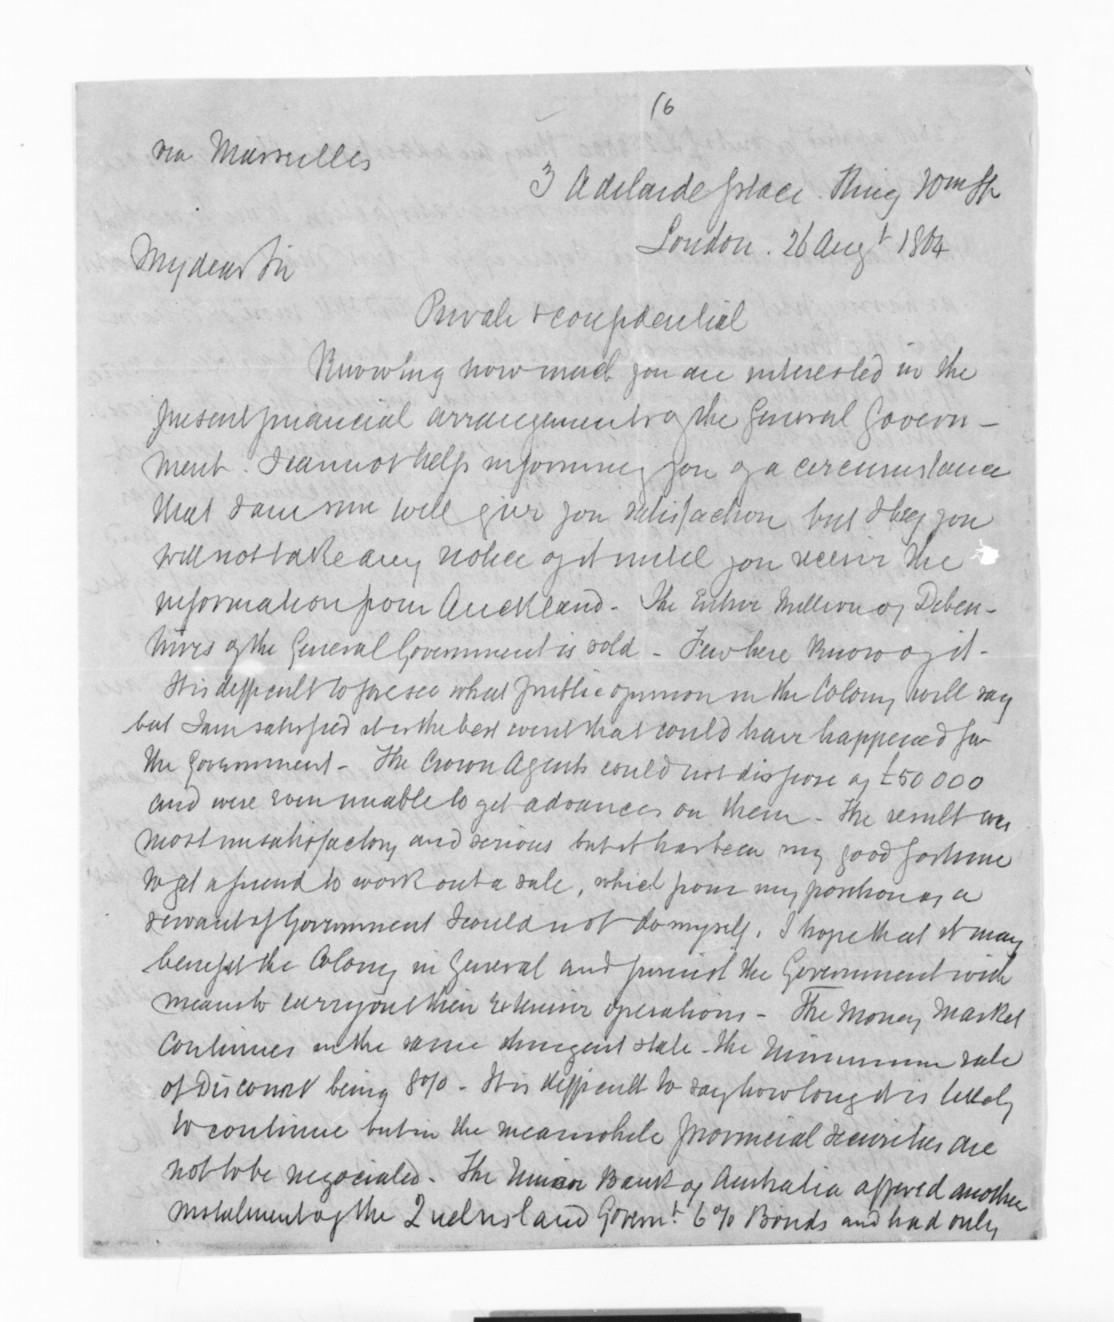 16
via Marseilles
3 Adelaide place. King Wm St
London. 26 Augt 1864
My dear Sir
Private & confidential
Knowing how much you are interested in the
present financial arrangements of the General Govern-
ment. I cannot help informing you of a circumstance
that I am sure will give you satisfaction but I beg you
will not take any notice of it until you receive the
information from Auckland - The Entire Million of Deben-
tures of the General Government is sold - Few here know of it -
It is difficult to foresee what public opinion in the Colony will say
but I am satisfied it is the best event that could have happened for
the Government - The Crown Agents could not dispose of £50000
and were even unable to get advances on them - The result was
most unsatisfactory and serious but it has been my good fortune
to get a friend to work out a sale, which from my position as a
servant of Government I could not do myself. I hope that it may
benefit the Colony in general and furnish the Government with
means to carry out their extensive operations - The Money Market
continues in the same stringent state - the minimum rate
of Discount being 8% - It is difficult to say how long it is likely
to continue but in the meanwhile provincial securities are
not to be negociated - The Union Bank of Australia offered another
instalment of the Queensland Governt 6% Bonds and had only